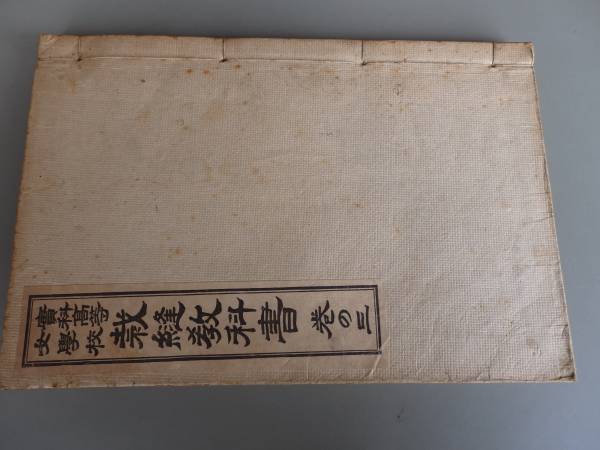 實科高等
女學校
裁縫教科書 卷の三